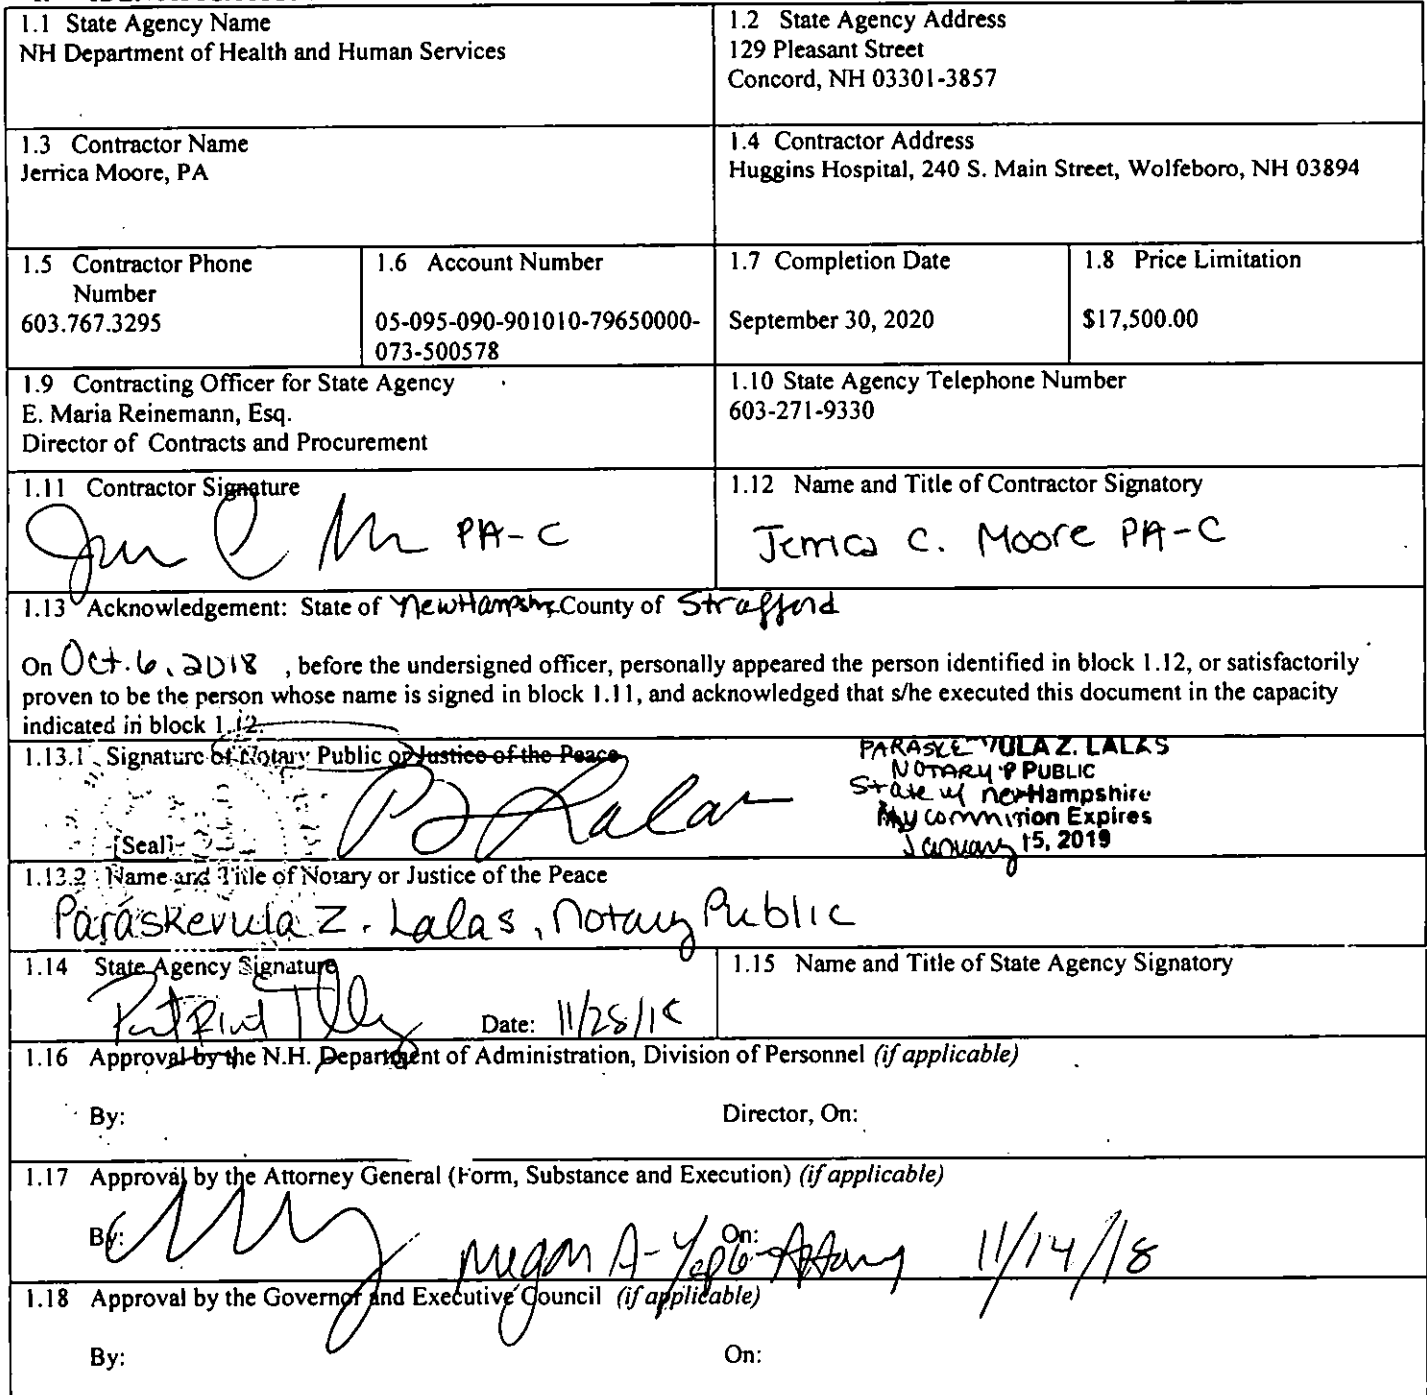 1.1 State Agency Name
NH Department of Health and Human Services
1.2 State Agency Address
129 Pleasant Street
Concord, NH 03301-3857
1.3 Contractor Name
Jerrica Moore, PA
1.4 Contractor Address
Huggins Hospital, 240 S. Main Street, Wolfeboro, NH 03894
1.5 Contractor Phone
Number
603.767.3295
1.6 Account Number
05-095-090-901010-79650000-
073-500578
1.7 Completion Date
September 30, 2020
1.8 Price Limitation
$17,500.00
1.9 Contracting Officer for State Agency
E. Maria Reinemann, Esq.
Director of Contracts and Procurement
1.10 State Agency Telephone Number
603-271-9330
1.11 Contractor Signature
PA-C
1.12 Name and Title of Contractor Signatory
Jerrica C. Moore PA-C
1.13 Acknowledgement: State of New Hampshire County of Strafford
On Oct. 6, 2018 , before the undersigned officer, personally appeared the person identified in block 1.12, or satisfactorily
proven to be the person whose name is signed in block 1.11, and acknowledged that s/he executed this document in the capacity
indicated in block 1.12.
1.13.1 Signature of Notary Public or Justice of the Peace
[Seal]
P Z Lalas
PARASKEVULA Z. LALAS
NOTARY PUBLIC
State of New Hampshire
My Commission Expires
January 15, 2019
1.13.2 Name and Title of Notary or Justice of the Peace
Paraskevula Z. Lalas, Notary Public
1.14 State Agency Signature
Date: 11/28/18
1.15 Name and Title of State Agency Signatory
1.16 Approval by the N.H. Department of Administration, Division of Personnel (if applicable)
By:
Director, On:
1.17 Approval by the Attorney General (Form, Substance and Execution) (if applicable)
By:
Megan A. Attorney
On:
11/14/18
1.18 Approval by the Governor and Executive Council (if applicable)
By:
On: